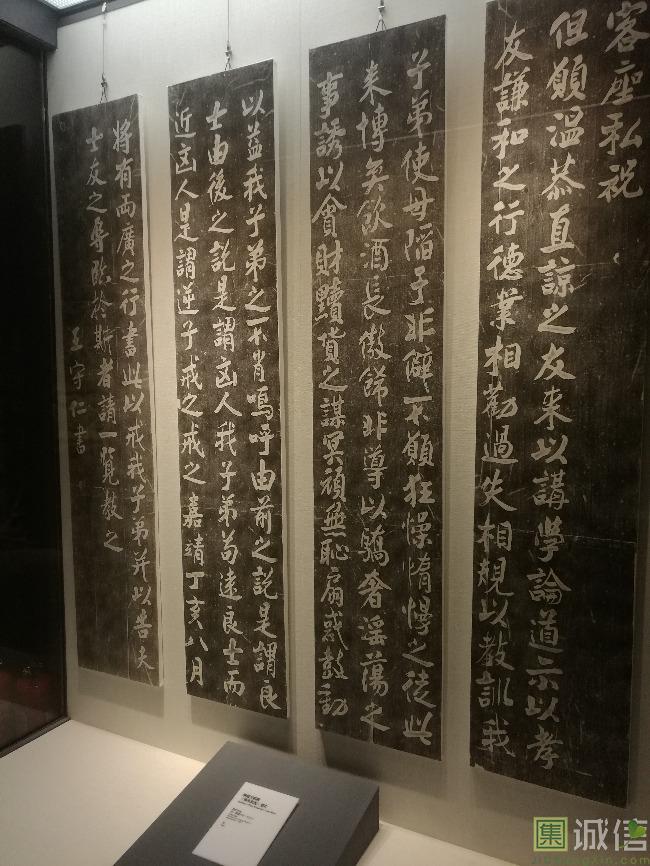 客座私祝
但願溫恭直諒之友来以講學論道示以孝
友謙和之行德業相勸過失相規以教訓我
子弟使毋陷于非僻不願狂懆惰慢之徒此
来博奕飲酒長傲飾非導以驕奢淫蕩之
事誘以貪財黷貨之謀冥頑無恥扇惑鼓動
以益我子弟之不肖嗚呼由前之説是謂良
士由後之説是謂凶人我子弟苟遠良士而
近凶人是謂逆子戒之戒之嘉靖丁亥八月
將有兩廣之行書此以戒我子弟并以告夫
士友之辱臨於斯者請一覽教之
王守仁書
集诚信